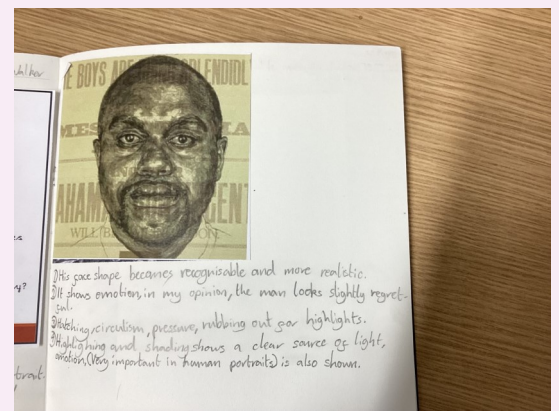 alker
E BOYS ARE DOING SPLENDIDL
MES
AHAMA
GENT
WILL B
1) His face shape becomes recognisable and more realistic.
2) It shows emotion, in my opinion, the man looks slightly regret-
ful.
3) Hatching, circulism, pressure, rubbing out for highlights.
3) Highlighing and shading shows a clear source of light,
emotion, (Very important in human portraits) is also shown.
y?
trait.